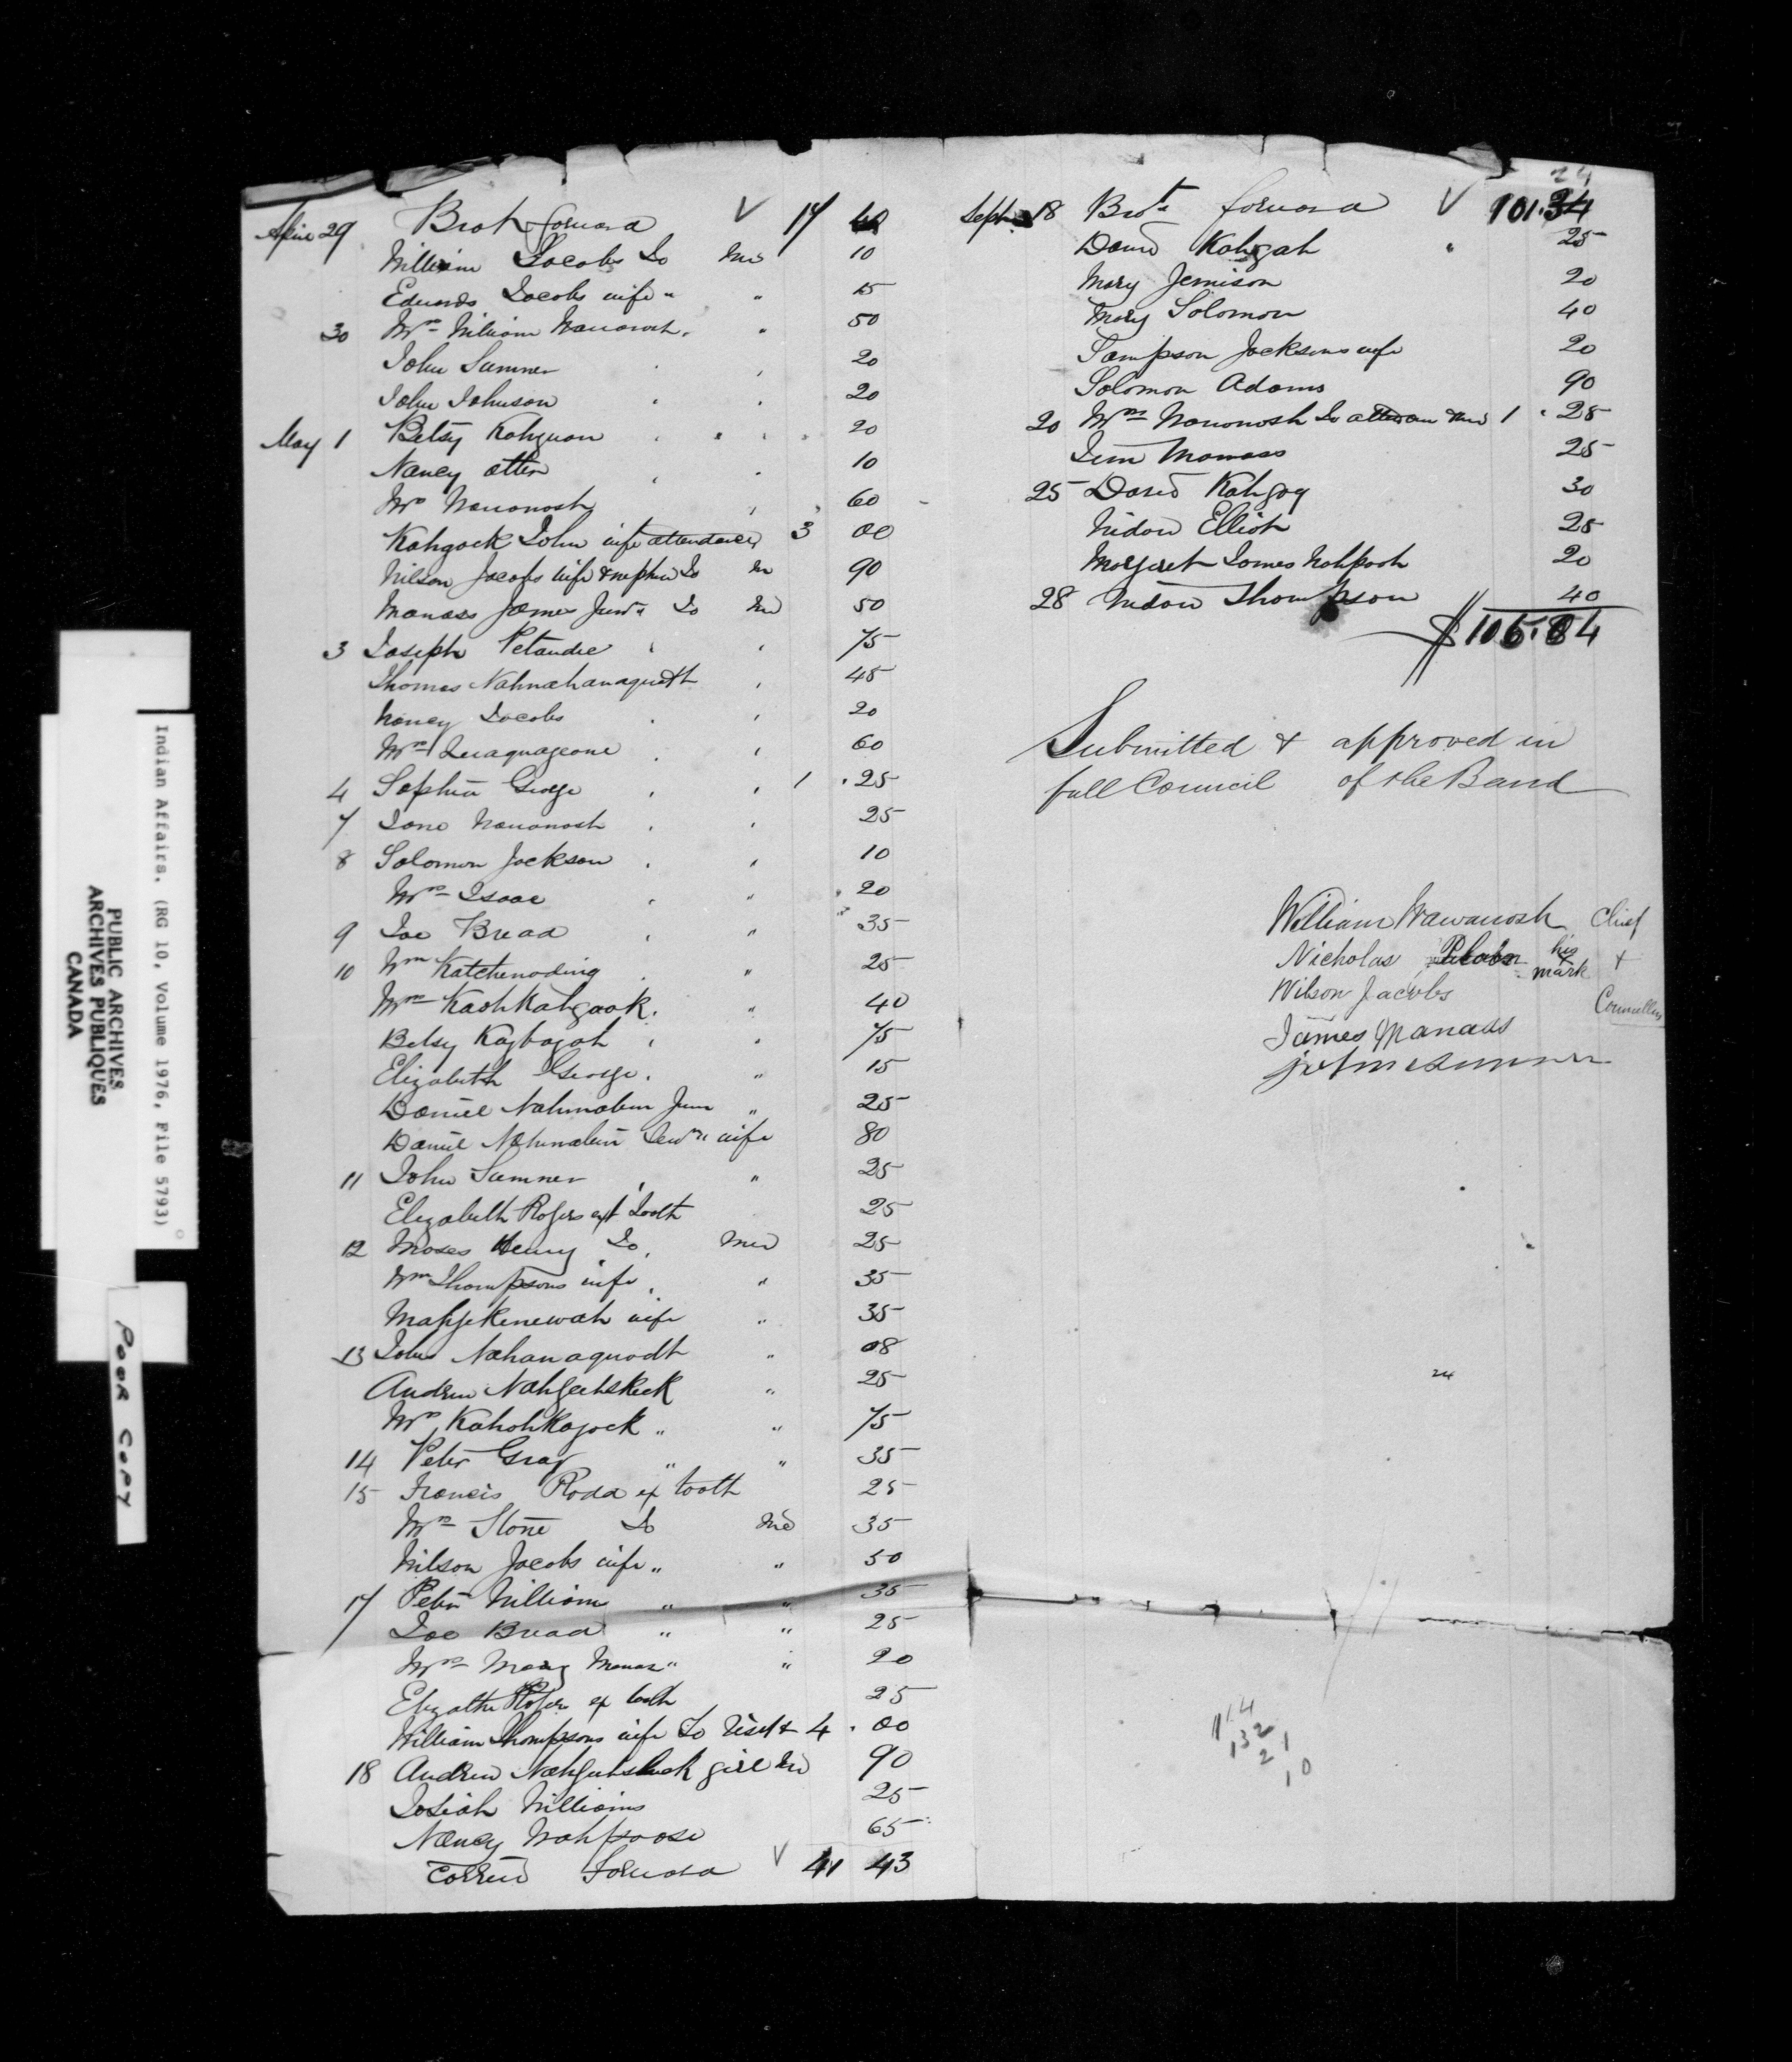 April 29 Brot forward V 17 40
William Jacobs To Med 10
Edwards Jacobs wife " " 15
30 Mrs William Wawanosh " 50
John Sumner 20
John Johnson 20
May 1 Betsy Kahguon 20
Nancy Otter 10
Mrs Wawanosh 60
Kahgock John wife attendance 3 00
Wilson Jacobs wife & nephew To M 90
Manass James Junr To Med 50
3 Joseph Petaudie 75
Thomas Nahnahanaquoth 45
Nancy Jacobs 20
Mrs Quaquageone 60
4 Sophia George 1 . 25
7 Jane Wawanosh 25
8 Solomon Jackson 10
Mrs Isaac " 20
9 Joe Bread " 35
10 Wm Katchenoding " 25
Mrs Kashkahgook " 40
Betsy Kagbagah " 75
Elizabeth George " 15
Daniel Nahmabin Jun " 25
Daniel Nahmabin Senr wife 80
11 John Sumner " 25
Elizabeth Rogers ext Tooth 25
12 Moses Henry To Med 25
Wm Thompsons wife " 35
Mahjekenewah wife " 35
13 John Nahanaquodt " 08
Andrew Nahgeehskeek " 25
Mrs Kahohkagock " " 75
14 Peter Gray " " 35
15 Francis Rodd ex tooth 25
Mrs Stone To Med 35
Wilson Jacobs wife " " 50
17 Peter William " " 35
Joe Bread " " 25
Mrs Mary Manas " " 20
Elizathe Roger ex tooth 25
William Thompsons wife To Visit & 4 . 00
18 Andrew girl Med 90
Josiah Williams 25
Nancy Wahpoose 65
Carried Forward V 41 43
24
Sept 18 Brot forward V 101.34
David Kahgah " 25
Mary Jemison 20
Mary Solomon 40
Sampson Jacksons wife 20
Solomon Adams 90
20 Mrs Wawanosh To attendan Med 1 . 25
Jim Manass 25
25 David Kahgog 30
Widow Elliot 25
Margaret James Wahpoosh 20
28 Widow Thompson 40
$ 106.84
Submitted & approved in
full Council of the Band
William Wawanosh Chief
Nicholas Plain his x mark +
Wilson Jacobs
Councellers
James Manass
john sumner
24
114
132
21
10
Indian Affairs. (RG 10, Volume 1976, File 5793)
PUBLIC ARCHIVES
ARCHIVES PUBLIQUES
CANADA
POOR COPY